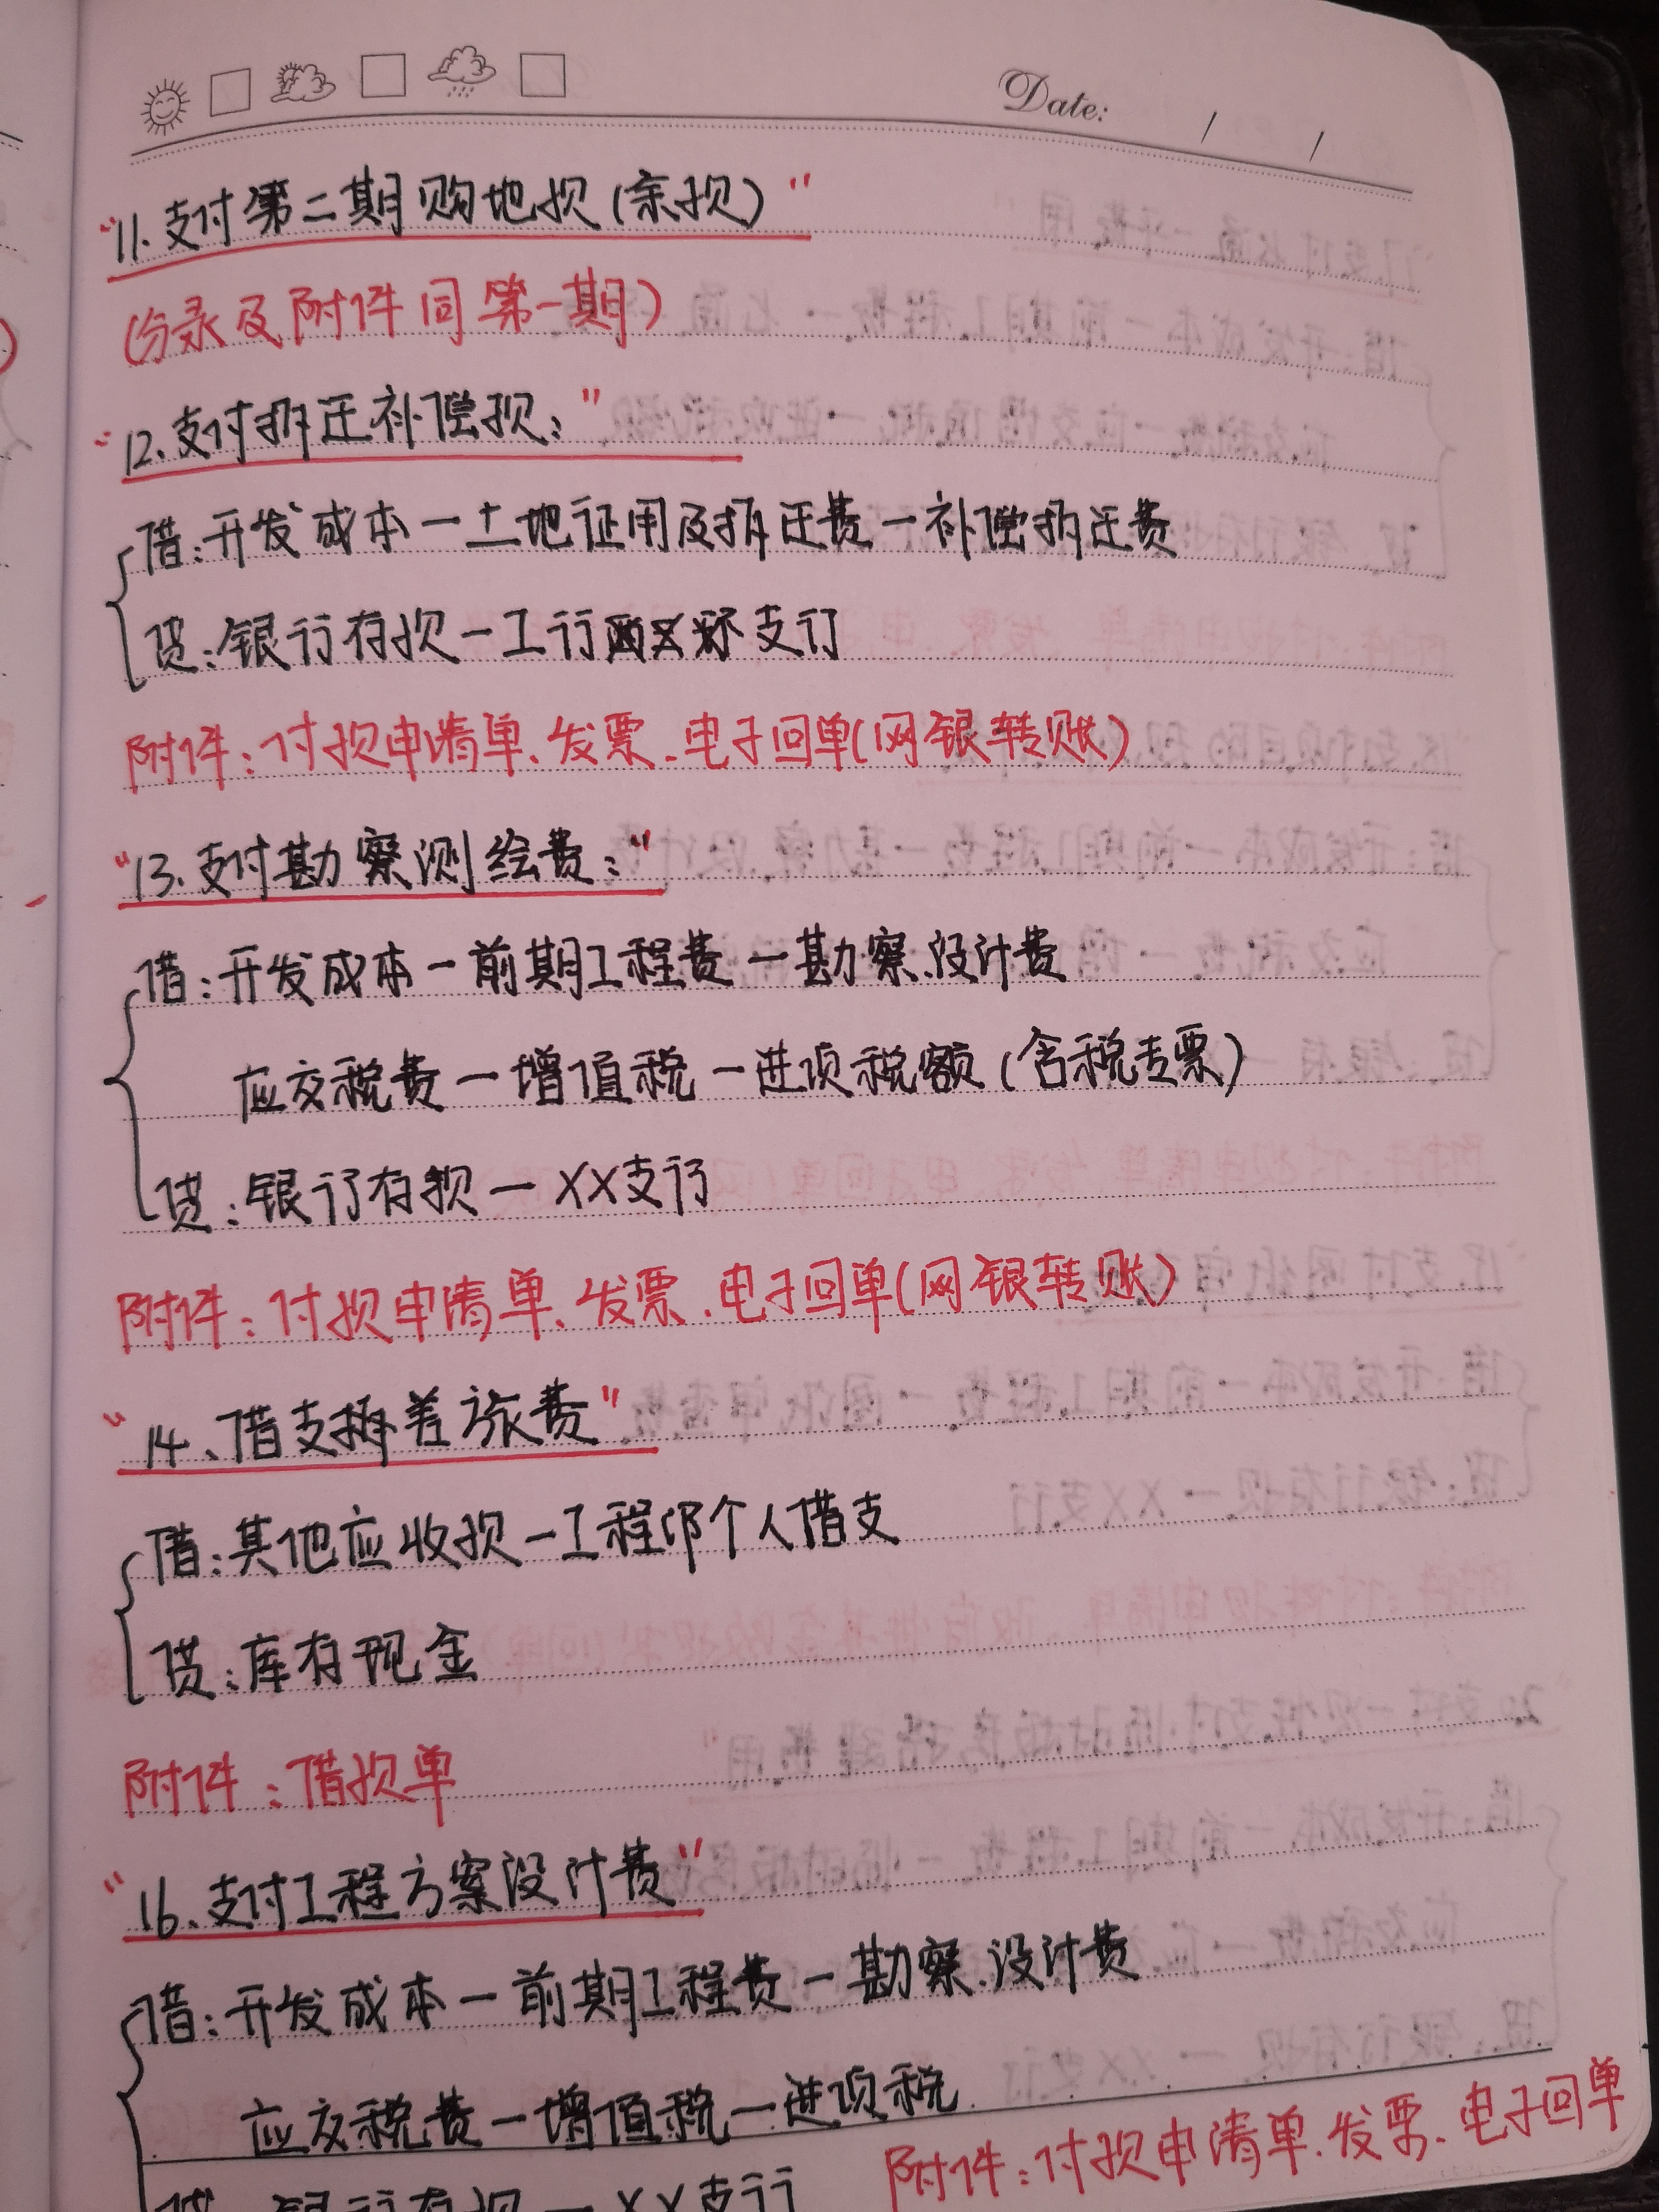 Date: / /
"11.支付第二期购地款(余款)"
(分录及附件同第一期)
"12.支付拆迁补偿款:"
借:开发成本-土地证用及拆迁费-补偿拆迁费
贷:银行存款-工行 支行
附件:付款申请单、发票、电子回单(网银转账)
"13.支付勘察测绘费:"
借:开发成本-前期工程费-勘察、设计费
应交税费-增值税-进项税额(含税专票)
贷:银行存款-XX支行
附件:付款申请单、发票、电子回单(网银转账)
"14、借支差旅费"
借:其他应收款-工程部个人借支
贷:库存现金
附件:借款单
"16.支付工程方案设计费"
借:开发成本-前期工程费-勘察、设计费
应交税费-增值税-进项税
附件:付款申请单、发票、电子回单
贷:银行存款-XX支行